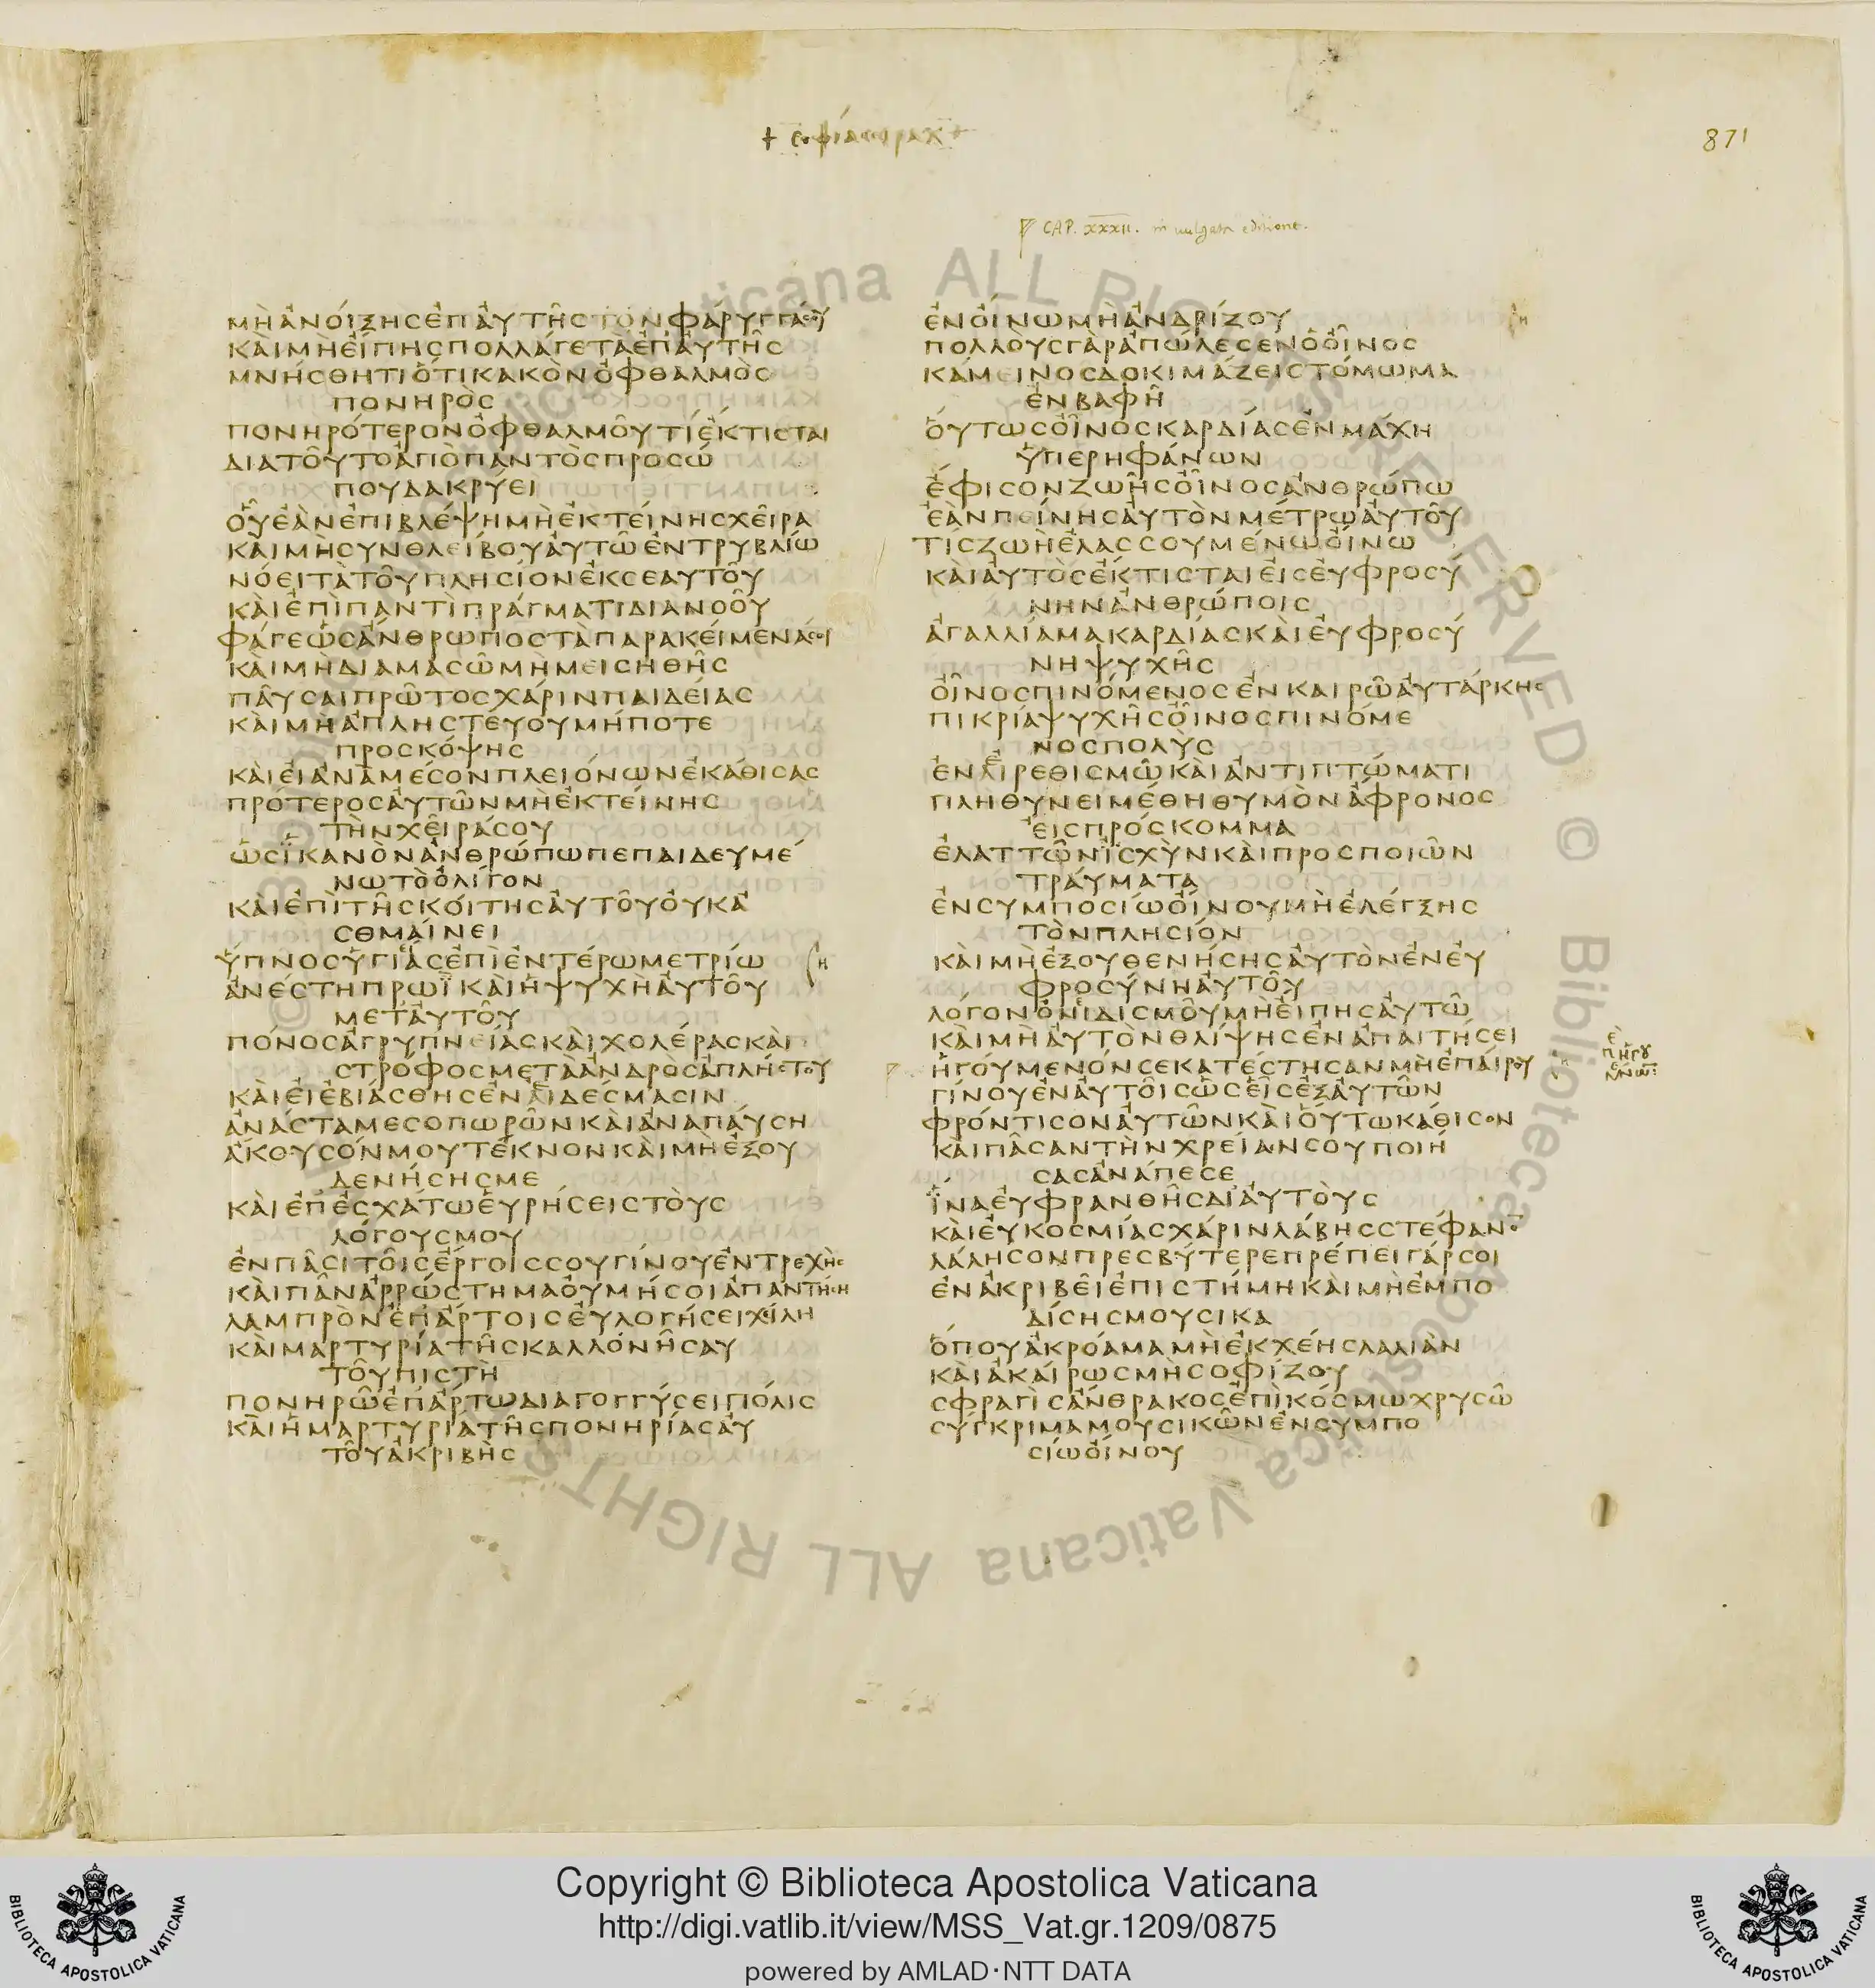 + σοφία σιραχ +
871
CAP. XXXII. in uulgata editione.
ΜΗ ΑΝΟΙΞΗΣ ΕΠ ΑΥΤΗΣ ΤΟΝ ΦΑΡΥΓΓΑ ΣΟΥ
ΚΑΙ ΜΗ ΕΙΠΗΣ ΠΟΛΛΑ ΓΕ ΤΑ ΕΠ ΑΥΤΗΣ
ΜΝΗΣΘΗΤΙ ΟΤΙ ΚΑΚΟΝ ΟΦΘΑΛΜΟΣ
ΠΟΝΗΡΟΣ
ΠΟΝΗΡΟΤΕΡΟΝ ΟΦΘΑΛΜΟΥ ΤΙ ΕΚΤΙΣΤΑΙ
ΔΙΑ ΤΟΥΤΟ ΑΠΟ ΠΑΝΤΟΣ ΠΡΟΣΩ
ΠΟΥ ΔΑΚΡΥΕΙ
ΟΥ ΕΑΝ ΕΠΙΒΛΕΨΗ ΜΗ ΕΚΤΕΙΝΗΣ ΧΕΙΡΑ
ΚΑΙ ΜΗ ΣΥΝΘΛΕΙΒΟΥ ΑΥΤΩ ΕΝ ΤΡΥΒΛΙΩ
ΝΟΕΙ ΤΑ ΤΟΥ ΠΛΗΣΙΟΝ ΕΚ ΣΕΑΥΤΟΥ
ΚΑΙ ΕΠΙ ΠΑΝΤΙ ΠΡΑΓΜΑΤΙ ΔΙΑΝΟΟΥ
ΦΑΓΕ ΩΣ ΑΝΘΡΩΠΟΣ ΤΑ ΠΑΡΑΚΕΙΜΕΝΑ ΣΟΙ
ΚΑΙ ΜΗ ΔΙΑΜΑΣΩ ΜΗ ΜΕΙΣΗΘΗΣ
ΠΑΥΣΑΙ ΠΡΩΤΟΣ ΧΑΡΙΝ ΠΑΙΔΕΙΑΣ
ΚΑΙ ΜΗ ΑΠΛΗΣΤΕΥΟΥ ΜΗΠΟΤΕ
ΠΡΟΣΚΟΨΗΣ
ΚΑΙ ΕΙ ΑΝΑ ΜΕΣΟΝ ΠΛΕΙΟΝΩΝ ΕΚΑΘΙΣΑΣ
ΠΡΟΤΕΡΟΣ ΑΥΤΩΝ ΜΗ ΕΚΤΕΙΝΗΣ
ΤΗΝ ΧΕΙΡΑ ΣΟΥ
ΩΣ ΙΚΑΝΟΝ ΑΝΘΡΩΠΩ ΠΕΠΑΙΔΕΥΜΕ
ΝΩ ΤΟ ΟΛΙΓΟΝ
ΚΑΙ ΕΠΙ ΤΗΣ ΚΟΙΤΗΣ ΑΥΤΟΥ ΟΥΚ Α
ΣΘΜΑΙΝΕΙ
ΥΠΝΟΣ ΥΓΙΑΣ ΕΠΙ ΕΝΤΕΡΩ ΜΕΤΡΙΩ
ΑΝΕΣΤΗ ΠΡΩΙ ΚΑΙ Η ΨΥΧΗ ΑΥΤΟΥ
ΜΕΤ ΑΥΤΟΥ
ΠΟΝΟΣ ΑΓΡΥΠΝΕΙΑΣ ΚΑΙ ΧΟΛΕΡΑΣ ΚΑΙ
ΣΤΡΟΦΟΣ ΜΕΤΑ ΑΝΔΡΟΣ ΑΠΛΗΣΤΟΥ
ΚΑΙ ΕΙ ΕΒΙΑΣΘΗΣ ΕΝ ΑΙΔΕΣΜΑΣΙΝ
ΑΝΑΣΤΑ ΜΕΣΟΠΩΡΩΝ ΚΑΙ ΑΝΑΠΑΥΣΗ
ΑΚΟΥΣΟΝ ΜΟΥ ΤΕΚΝΟΝ ΚΑΙ ΜΗ ΕΞΟΥ
ΔΕΝΗΣΗΣ ΜΕ
ΚΑΙ ΕΠ ΕΣΧΑΤΩ ΕΥΡΗΣΕΙΣ ΤΟΥΣ
ΛΟΓΟΥΣ ΜΟΥ
ΕΝ ΠΑΣΙ ΤΟΙΣ ΕΡΓΟΙΣ ΣΟΥ ΓΙΝΟΥ ΕΝΤΡΕΧΗΣ
ΚΑΙ ΠΑΝ ΑΡΡΩΣΤΗΜΑ ΟΥ ΜΗ ΣΟΙ ΑΠΑΝΤΗΣΗ
ΛΑΜΠΡΟΝ ΕΠ ΑΡΤΟΙΣ ΕΥΛΟΓΗΣΕΙ ΧΕΙΛΗ
ΚΑΙ ΜΑΡΤΥΡΙΑ ΤΗΣ ΚΑΛΛΟΝΗΣ ΑΥ
ΤΟΥ ΠΙΣΤΗ
ΠΟΝΗΡΩ ΕΠ ΑΡΤΩ ΔΙΑΓΟΓΓΥΣΕΙ ΠΟΛΙΣ
ΚΑΙ Η ΜΑΡΤΥΡΙΑ ΤΗΣ ΠΟΝΗΡΙΑΣ ΑΥ
ΤΟΥ ΑΚΡΙΒΗΣ
ΕΝ ΟΙΝΩ ΜΗ ΑΝΔΡΙΖΟΥ
ΠΟΛΛΟΥΣ ΓΑΡ ΑΠΩΛΕΣΕΝ Ο ΟΙΝΟΣ
ΚΑΜΕΙΝΟΣ ΔΟΚΙΜΑΖΕΙ ΣΤΟΜΩΜΑ
ΕΝ ΒΑΦΗ
ΟΥΤΩΣ ΟΙΝΟΣ ΚΑΡΔΙΑΣ ΕΝ ΜΑΧΗ
ΥΠΕΡΗΦΑΝΩΝ
ΕΦΙΣΟΝ ΖΩΗΣ ΟΙΝΟΣ ΑΝΘΡΩΠΩ
ΕΑΝ ΠΕΙΝΗΣ ΑΥΤΟΝ ΜΕΤΡΩ ΑΥΤΟΥ
ΤΙΣ ΖΩΗ ΕΛΑΣΣΟΥΜΕΝΩ ΟΙΝΩ
ΚΑΙ ΑΥΤΟΣ ΕΚΤΙΣΤΑΙ ΕΙΣ ΕΥΦΡΟΣΥ
ΝΗΝ ΑΝΘΡΩΠΟΙΣ
ΑΓΑΛΛΙΑΜΑ ΚΑΡΔΙΑΣ ΚΑΙ ΕΥΦΡΟΣΥ
ΝΗ ΨΥΧΗΣ
ΟΙΝΟΣ ΠΙΝΟΜΕΝΟΣ ΕΝ ΚΑΙΡΩ ΑΥΤΑΡΚΗΣ
ΠΙΚΡΙΑ ΨΥΧΗΣ ΟΙΝΟΣ ΠΙΝΟΜΕ
ΝΟΣ ΠΟΛΥΣ
ΕΝ ΑΙΡΕΘΙΣΜΩ ΚΑΙ ΑΝΤΙΠΤΩΜΑΤΙ
ΠΛΗΘΥΝΕΙ ΜΕΘΗ ΘΥΜΟΝ ΑΦΡΟΝΟΣ
ΕΙΣ ΠΡΟΣΚΟΜΜΑ
ΕΛΑΤΤΩΝ ΙΣΧΥΝ ΚΑΙ ΠΡΟΣΠΟΙΩΝ
ΤΡΑΥΜΑΤΑ
ΕΝ ΣΥΜΠΟΣΙΩ ΟΙΝΟΥ ΜΗ ΕΛΕΓΞΗΣ
ΤΟΝ ΠΛΗΣΙΟΝ
ΚΑΙ ΜΗ ΕΞΟΥΘΕΝΗΣΗΣ ΑΥΤΟΝ ΕΝ ΕΥ
ΦΡΟΣΥΝΗ ΑΥΤΟΥ
ΛΟΓΟΝ ΟΝΙΔΙΣΜΟΥ ΜΗ ΕΙΠΗΣ ΑΥΤΩ
ΚΑΙ ΜΗ ΑΥΤΟΝ ΘΛΙΨΗΣ ΕΝ ΑΠΑΙΤΗΣΕΙ
ΗΓΟΥΜΕΝΟΝ ΣΕ ΚΑΤΕΣΤΗΣΑΝ ΜΗ ΕΠΑΙΡΟΥ
ΓΙΝΟΥ ΕΝ ΑΥΤΟΙΣ ΩΣ ΕΙΣ ΕΞ ΑΥΤΩΝ
ΦΡΟΝΤΙΣΟΝ ΑΥΤΩΝ ΚΑΙ ΟΥΤΩ ΚΑΘΙΣΟΝ
ΚΑΙ ΠΑΣΑΝ ΤΗΝ ΧΡΕΙΑΝ ΣΟΥ ΠΟΙΗ
ΣΑΣ ΑΝΑΠΕΣΕ
ΙΝΑ ΕΥΦΡΑΝΘΗΣ ΔΙ ΑΥΤΟΥΣ
ΚΑΙ ΕΥΚΟΣΜΙΑΣ ΧΑΡΙΝ ΛΑΒΗΣ ΣΤΕΦΑΝΟ̅
ΛΑΛΗΣΟΝ ΠΡΕΣΒΥΤΕΡΕ ΠΡΕΠΕΙ ΓΑΡ ΣΟΙ
ΕΝ ΑΚΡΙΒΕΙ ΕΠΙΣΤΗΜΗ ΚΑΙ ΜΗ ΕΜΠΟ
ΔΙΣΗΣ ΜΟΥΣΙΚΑ
ΟΠΟΥ ΑΚΡΟΑΜΑ ΜΗ ΕΚΧΕΗΣ ΛΑΛΙΑΝ
ΚΑΙ ΑΚΑΙΡΩΣ ΜΗ ΣΟΦΙΖΟΥ
ΣΦΡΑΓΙΣ ΑΝΘΡΑΚΟΣ ΕΠΙ ΚΟΣΜΩ ΧΡΥΣΩ
ΣΥΓΚΡΙΜΑ ΜΟΥΣΙΚΩΝ ΕΝ ΣΥΜΠΟ
ΣΙΩ ΟΙΝΟΥ
Vaticana ALL RIGHTS RESERVED © Biblioteca Apostolica Vaticana ALL RIGHTS
Copyright © Biblioteca Apostolica Vaticana
http://digi.vatlib.it/view/MSS_Vat.gr.1209/0875
powered by AMLAD·NTT DATA
BIBLIOTECA APOSTOLICA VATICANA
BIBLIOTECA APOSTOLICA VATICANA